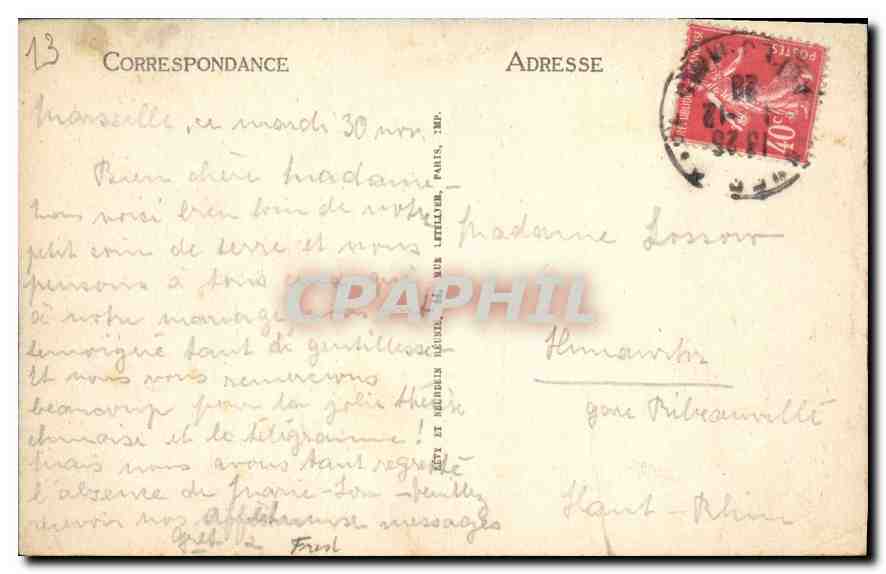 13
CORRESPONDANCE
ADRESSE
Marseille, ce mardi 30 nov.
Bien chère Madame –
Nous voici bien loin de notre
petit coin de terre et nous
pensons à tous
à notre mariage
témoigné tant de gentillesse –
Et nous vous remercions
beaucoup pour la jolie théière
chinoise et le télégramme !
Mais nous avons tant regretté
l'absence de Marie-Lou – Veuillez
recevoir nos messages
Fred
LÉVY ET NEURDEIN RÉUNIS, 44, RUE LETELLIER, PARIS, IMP.
Madame Lossow
Hunawihr
gare Ribeauvillé
Haut-Rhin
POSTES
40c
13 25
-12
CPAPHIL